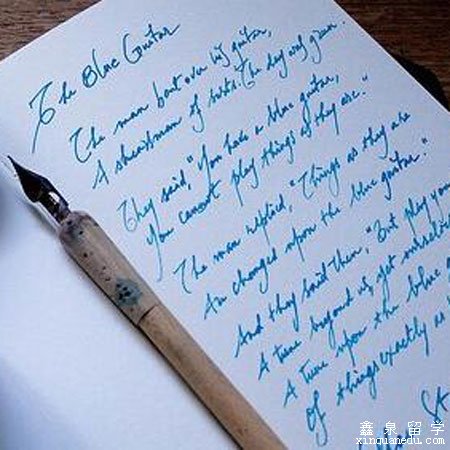 The Blue Guitar
The man bent over his guitar,
A shearsman of sorts. The day was green.
They said, "You have a blue guitar,
You cannot play things as they are."
The man replied, "Things as they are
Are changed upon the blue guitar."
And they said then, "But play you
A tune beyond us, yet ourselves
A tune upon the blue
Of things exactly as
鑫泉留学
xinquanedu.com